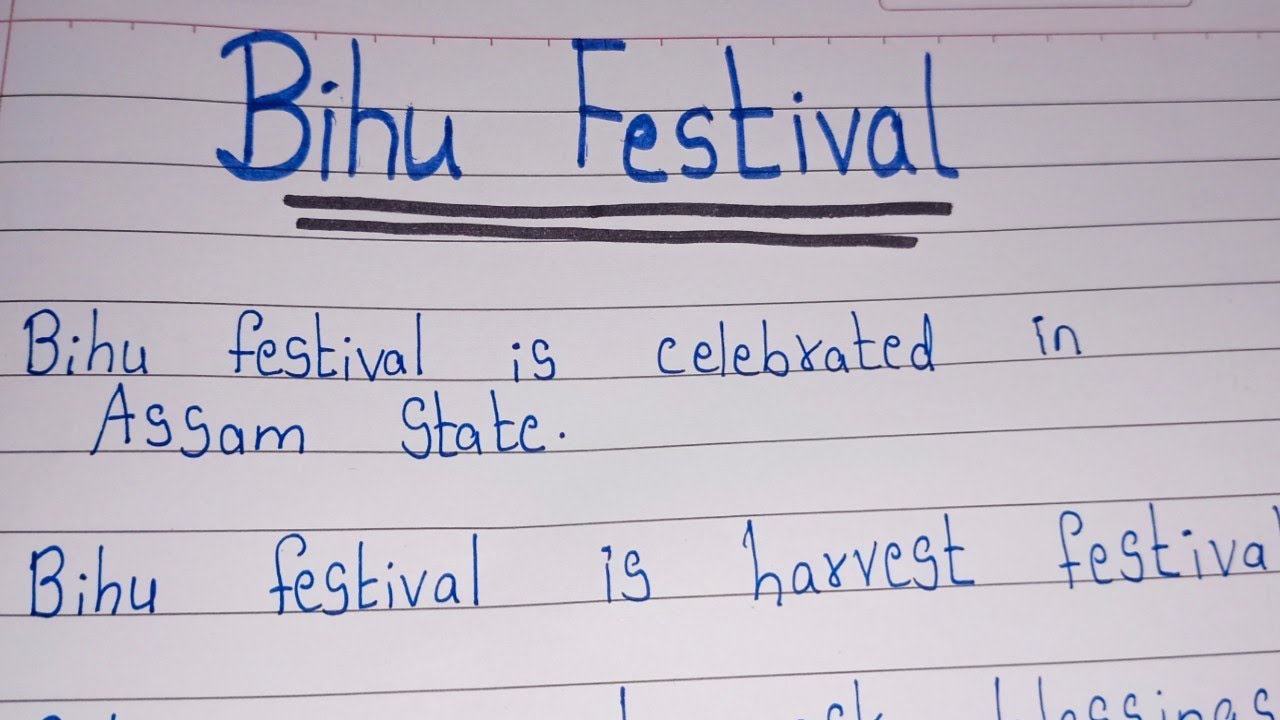 Bihu Festival
Bihu festival is celebrated in
Assam State.
Bihu festival is harvest festival
blessings